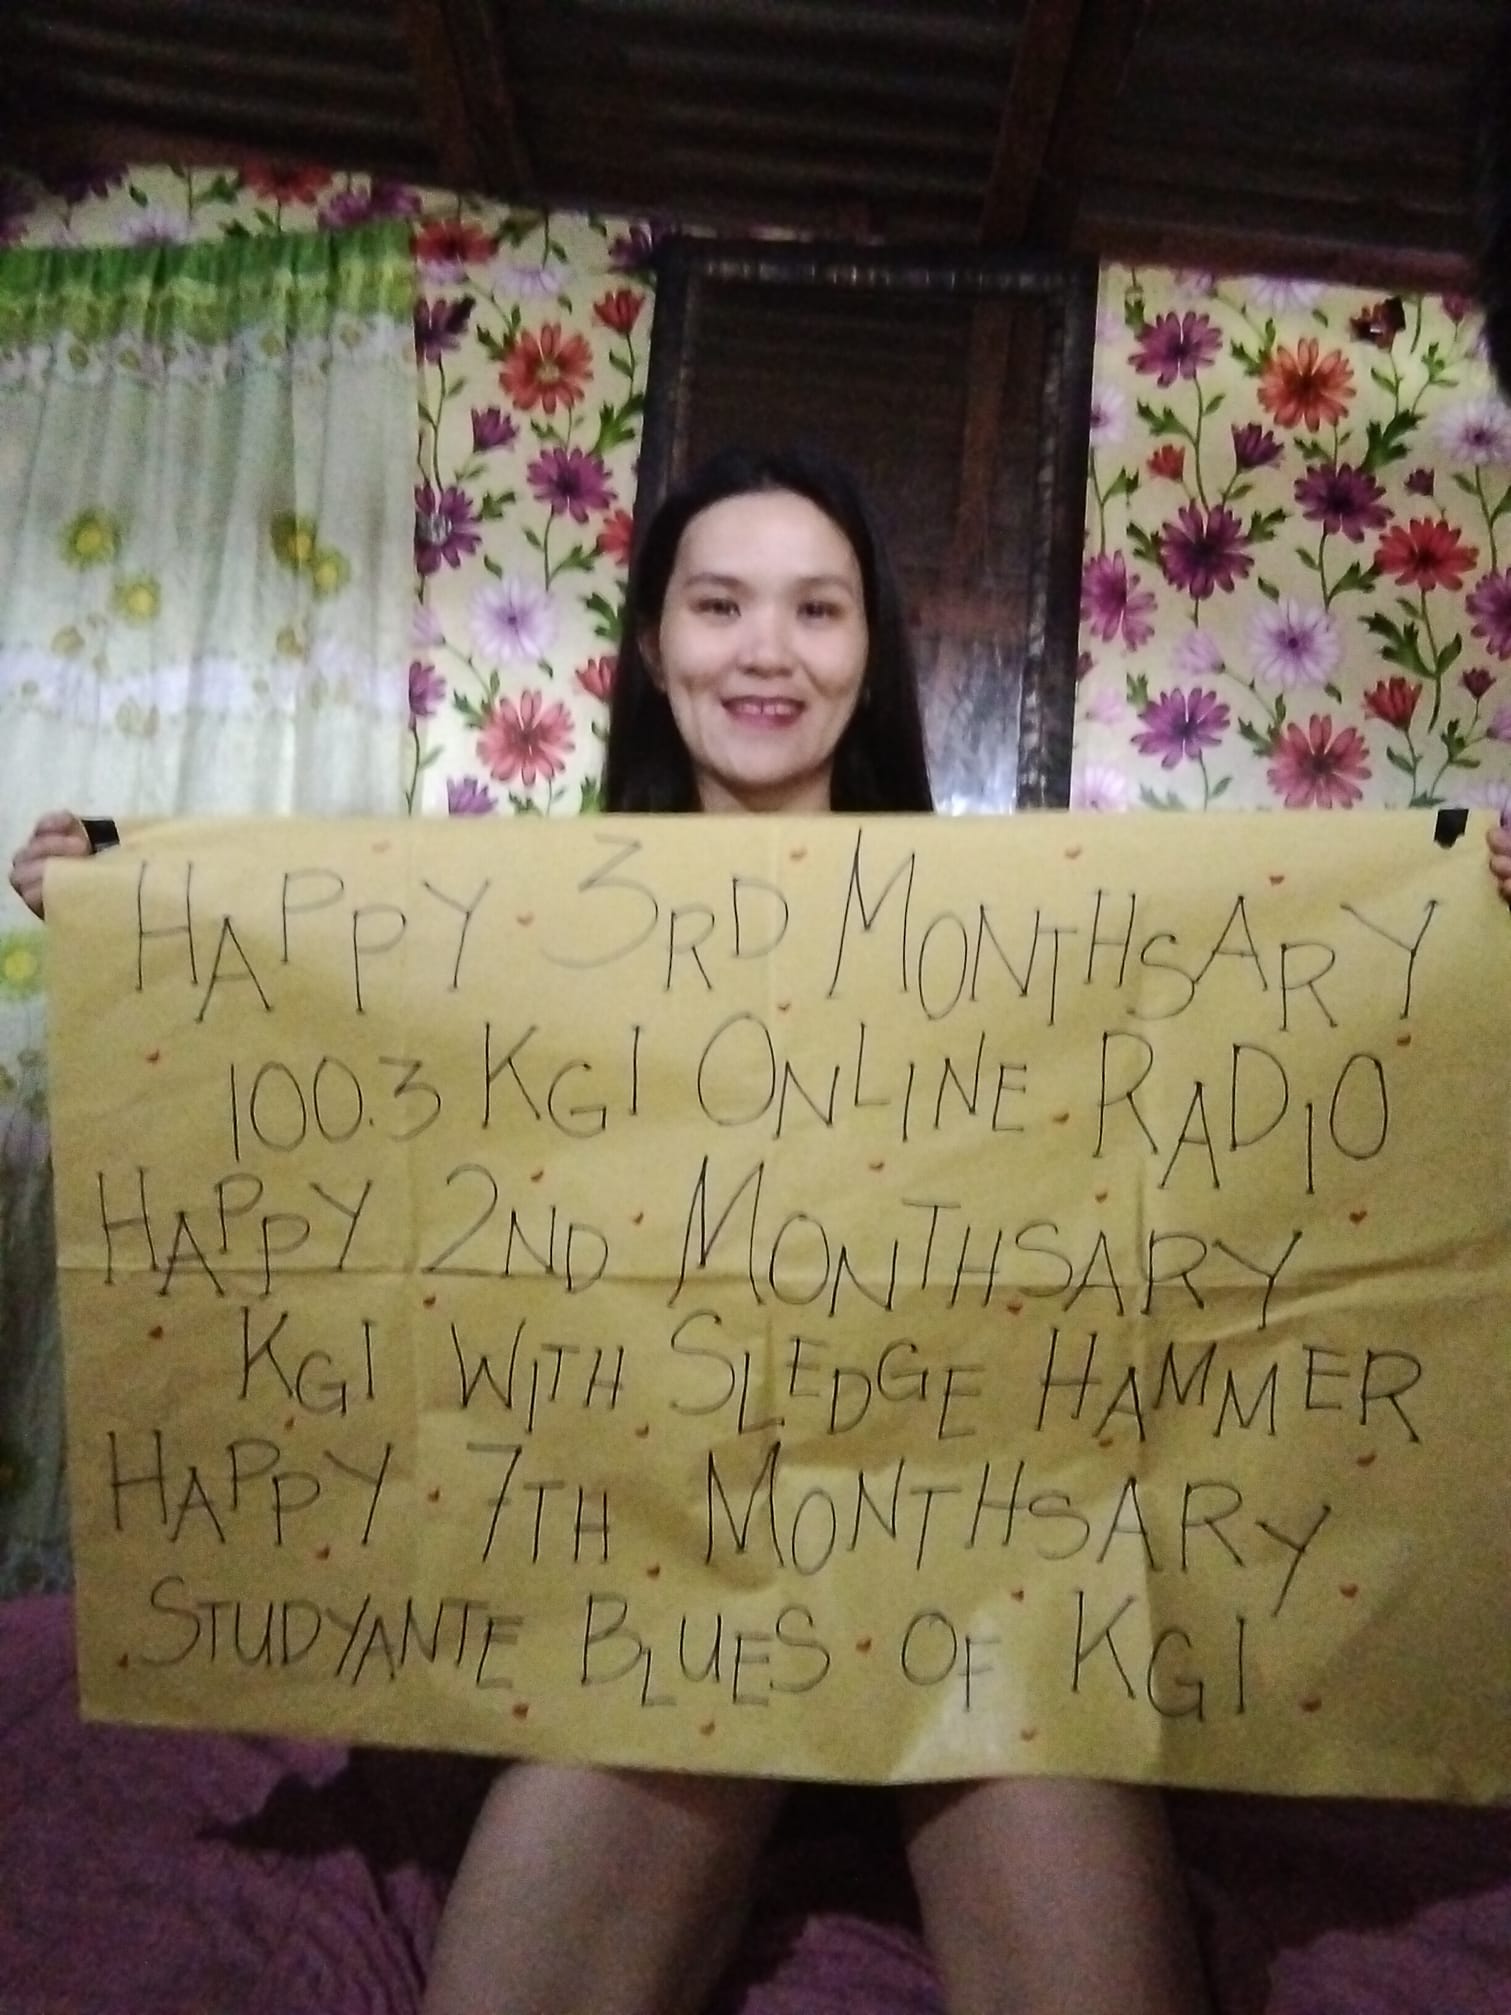 HAPPY 3RD MONTHSARY
100.3 KGI ONLINE RADIO
HAPPY 2ND MONTHSARY
KGI WITH SLEDGE HAMMER
HAPPY 7TH MONTHSARY
STUDYANTE BLUES OF KGI